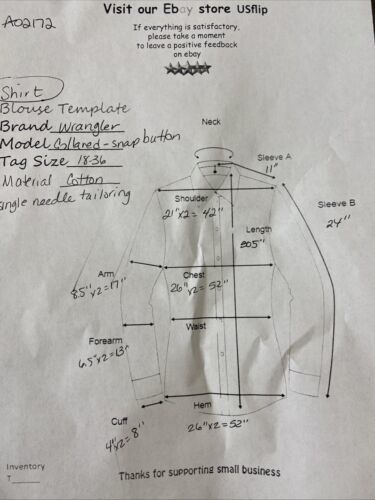 Visit our Ebay store USflip
A02172
If everything is satisfactory,
please take a moment
to leave a positive feedback
on ebay
Shirt
Blouse Template
Brand Wrangler
Model Collared - snap button
Tag Size 18-36
Material Cotton
single needle tailoring
Neck
Sleeve A
11"
Shoulder
21"x2= 42"
Sleeve B
24"
Length
Arm
8.5"x2=17"
Chest
26"x2= 52"
Waist
Forearm
6.5"x2=13"
Cuff
4"x2=8"
Hem
26"x2=52"
Inventory
T
Thanks for supporting small business